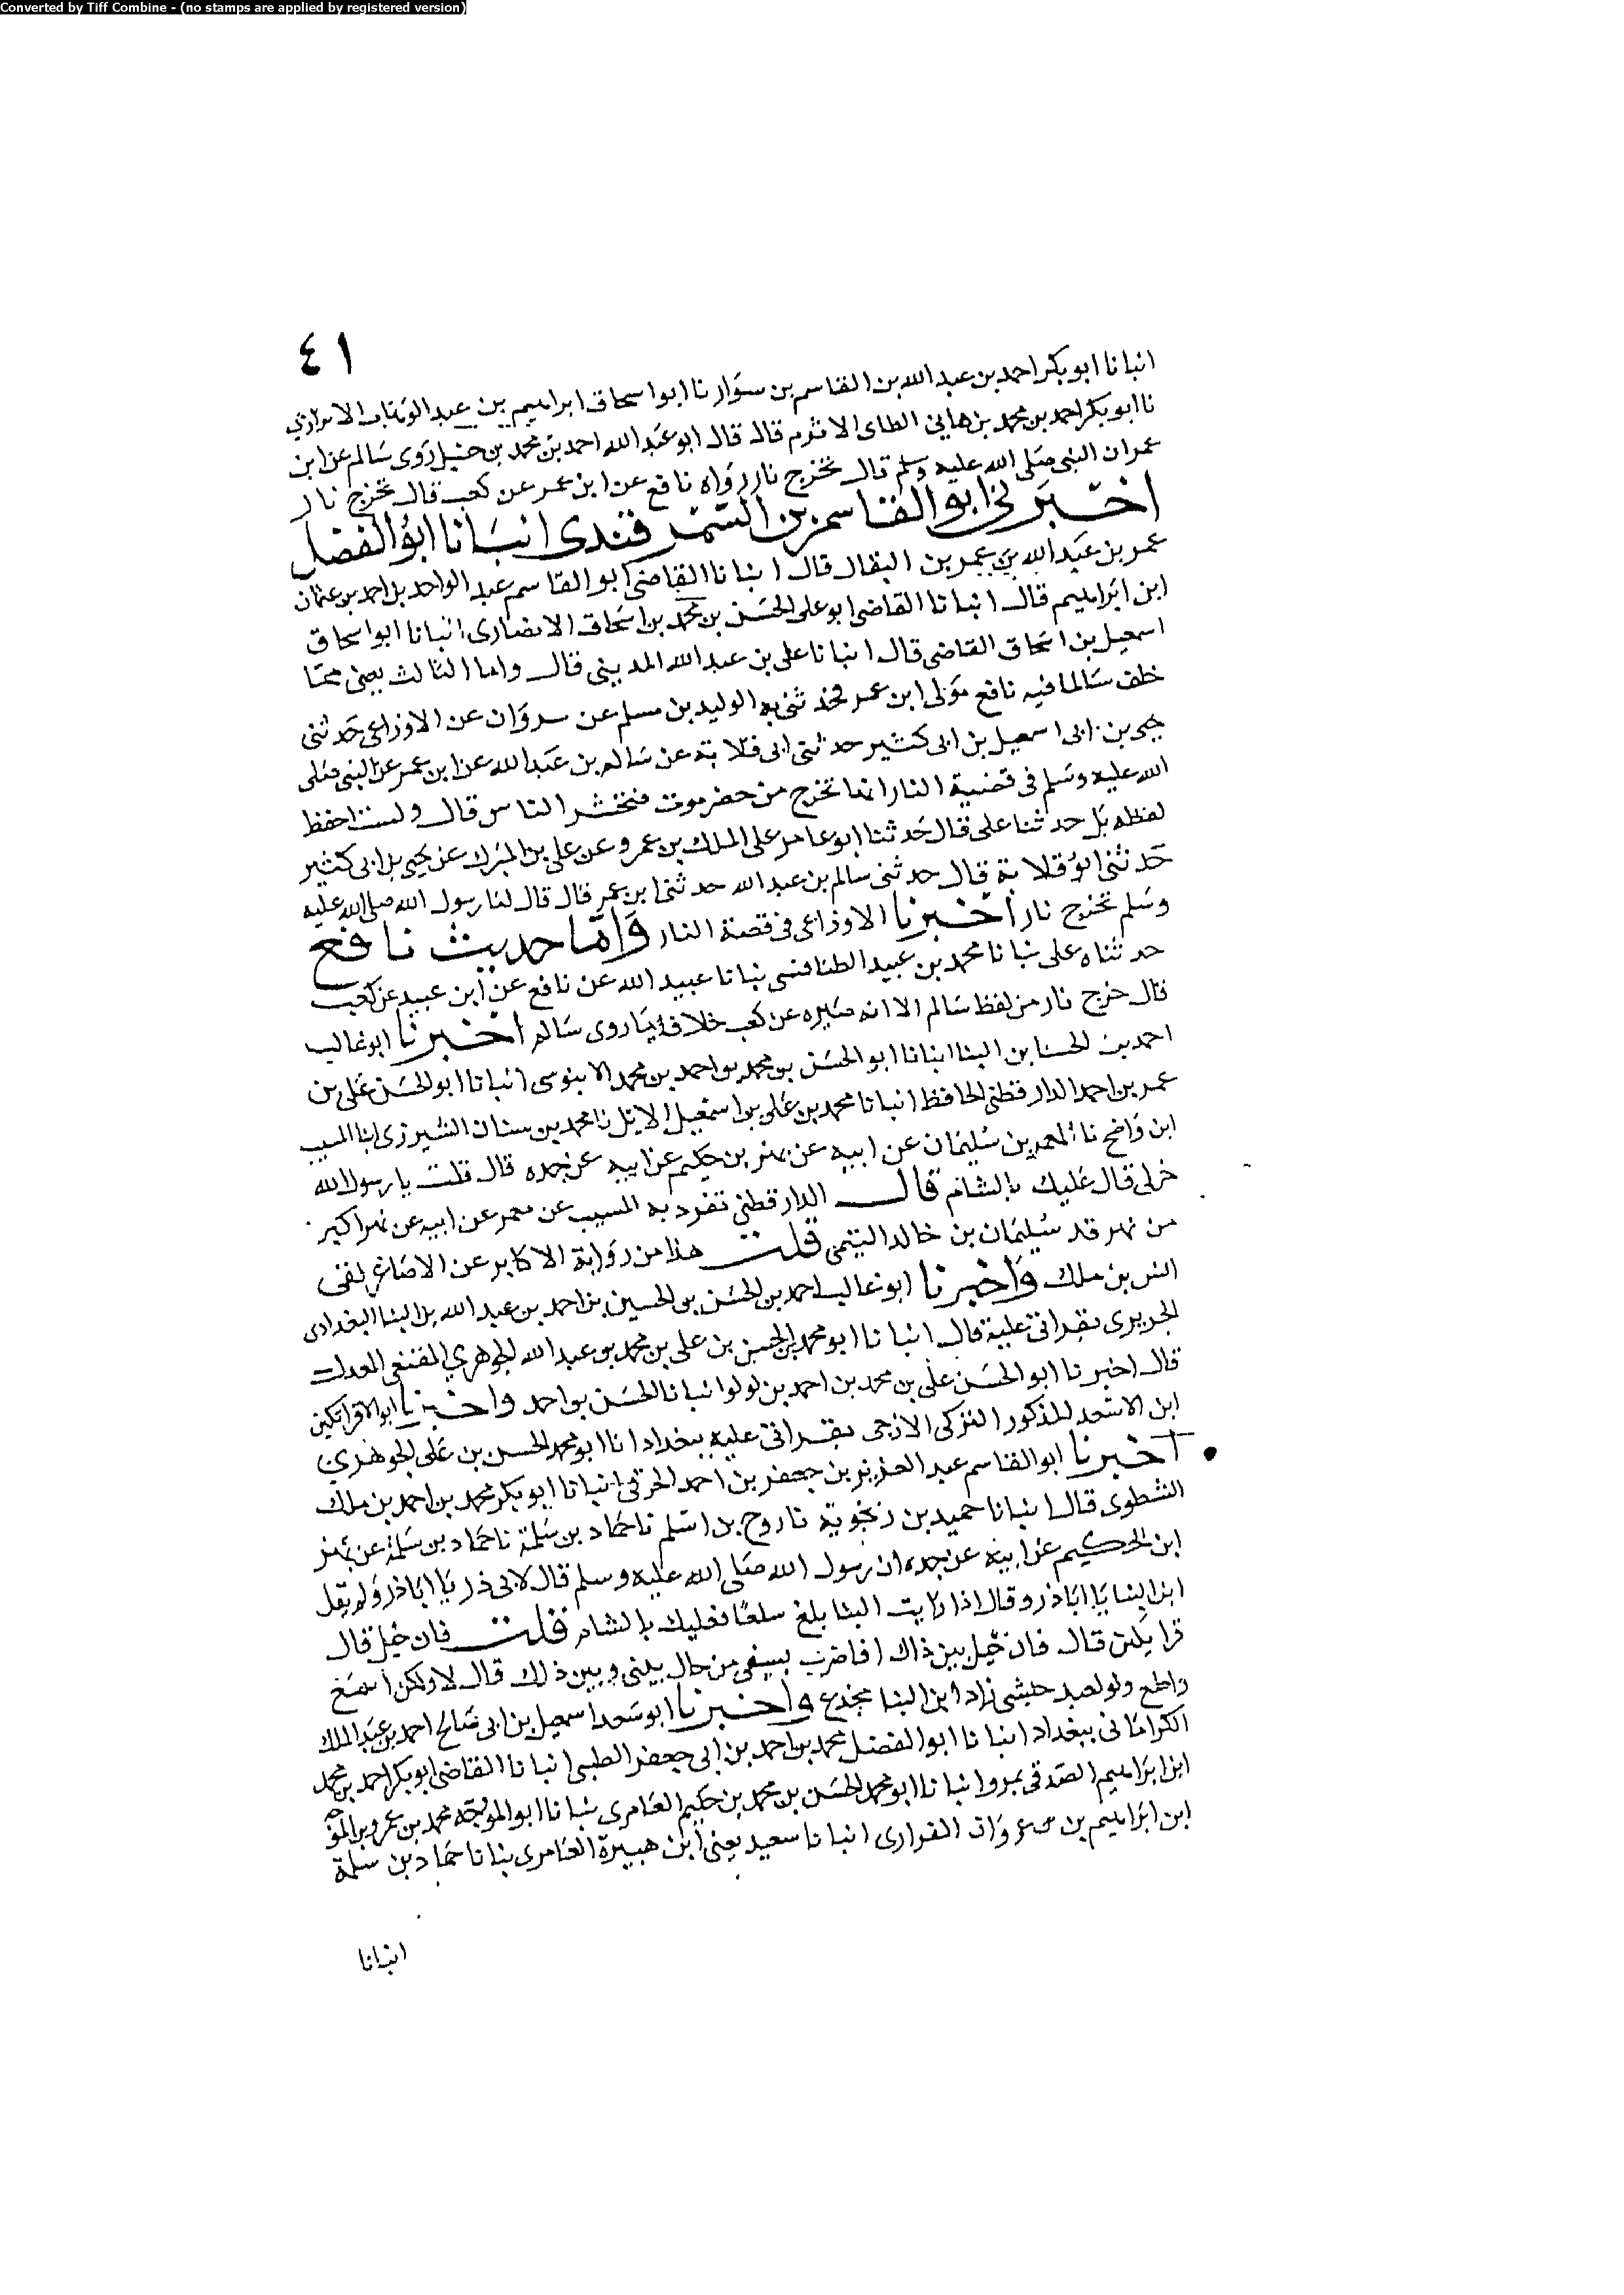 Converted by Tiff Combine - (no stamps are applied by registered version)
٤١
انبانا ابو بكر احمد بن عبد الله بن القاسم بن سوار نا ابوا سحاق ابراهيم بن عبد الوهاب الابزازي
نا ابو بكر احمد بن محمد بن هاني الطاى الاثرم قال قال ابو عبد الله احمد بن محمد بن حنبل روى سالم عن ابن
عمر ان النبى صلى الله عليه وسلم قال تخرج نار رواه نافع عن ابن عمر عن كعب قال تخرج نار
اخبرنى ابو القاسم بن السمرقندى انبانا ابو الفضل
عمر بن عبيد الله بن عمر بن البقال قال انبانا القاضى ابو القاسم عبد الواحد بن احمد بن عثمان
ابن ابراهيم قال انبانا القاضى ابو على الحسن بن محمد بن اسحاق الانصارى انبانا ابوا سحاق
اسمعيل بن اسحاق القاضى قال انبانا على بن عبد الله المدينى قال واما الثالث يعنى مما
خلف سالما فيه نافع مولى ابن عمر فحدثنى به الوليد بن مسلم عن سروان عن الاوزاعى حدثنى
يحيى بن ابى اسمعيل بن ابى كثير حدثنى ابى قلابة عن سالم بن عبد الله عن ابن عمر عن النبى صلى
الله عليه وسلم فى قضية النار انها تخرج من حضرموت فتحشر الناس قال ولست احفظ
لفظه بل حدثنا على قال حدثنا ابو عامر على الملك بن عمرو عن على بن المبرك عن يحيى بن ابى كثير
حدثنى ابو قلابة قال حدثنى سالم بن عبد الله حدثنى ابن عمر قال قال لنا رسول الله صلى الله عليه
وسلم تخرج نار اخبرنا الاوزاعى فى قصة النار واما حديث نافع
حدثناه على نبانا محمد بن عبيد الطنافسى نبانا عبيد الله عن نافع عن ابن عبيد عن كعب
قال خرج نار من لفظ سالم الا انه صيره عن كعب خلاف ما روى سالم اخبرنا ابو غالب
احمد بن الحسنا بن البنا انبانا ابو الحسن بن محمد بن احمد بن محمد الابنوسى انبانا ابو الحسن على بن
عمر بن احمد الدارقطنى الحافظ انبانا محمد بن على بن اسمعيل الايلى نا محمد بن سنان الشيرزى نا المسيب
ابن واضح نا المعمر بن سليمان عن ابيه عن بهز بن حكيم عن ابيه عن جده قال قلت يا رسول الله
خرلى قال عليك بالشام قال الدارقطنى تفرد به المسيب عن معمر عن ابيه عن نهر اكبر
من نهر قد سليمان بن خالد التيمى قلت هذا من رواية الاكابر عن الاصاغر لقى
انس بن ملك واخبرنا ابو غالب احمد بن الحسن بن الحسين بن احمد بن عبد الله بن البنا البغدادى
الجريرى بقراتى عليه قال انبانا ابو محمد بن الحسن بن على بن محمد بن عبد الله الجوهرى المقنعى المعدل
قال اخبرنا ابو الحسن على بن محمد بن احمد بن لولوا نبانا الحسن بن احمد واخبرنا ابو الاقراتكين
ابن الاسعد المذكور التركى الازجى بقراتى عليه ببغداد انا ابو محمد الحسن بن على الجوهرى
اخبرنا ابو القاسم عبد العزيز بن جعفر بن احمد الخرقى انبانا ابو بكر محمد بن احمد بن ملك
الشطوى قال انبانا حميد بن زنجوية نا روح بن اسلم نا حماد بن سلمة نا حماد بن سلمة عن بهز
ابن الحكيم عن ابيه عن جده ان رسول الله صلى الله عليه وسلم قال لابى ذر يا اباذر ولم يقل
ابن البنا يا اباذر وقال اذا رايت البنا بلغ سلعا فعليك بالشام قلت فان حيل قال
قرا يكن قال فان حيل بين ذاك افاضرب بسيفى من حال بينى وبين ذلك قال لا ولكن اسمع
واطع ولو لعبد حبشى زاد ابن البنا مجدع واخبرنا ابو سعد اسمعيل بن ابى صالح احمد بن عبد الملك
الكرمانى ببغداد انبانا ابو الفضل محمد بن احمد بن ابى جعفر الطبسى انبانا القاضى ابو بكر احمد بن محمد
ابن ابراهيم الصدقى بمرو انبانا ابو محمد الحسن بن محمد بن حكيم العامرى نبانا ابو الموجه محمد بن عمرو بن الموجه
ابن ابراهيم بن غزوان الفزارى انبانا سعيد يعنى ابن هبيرة العامرى نبانا حماد بن سلمة
انبانا